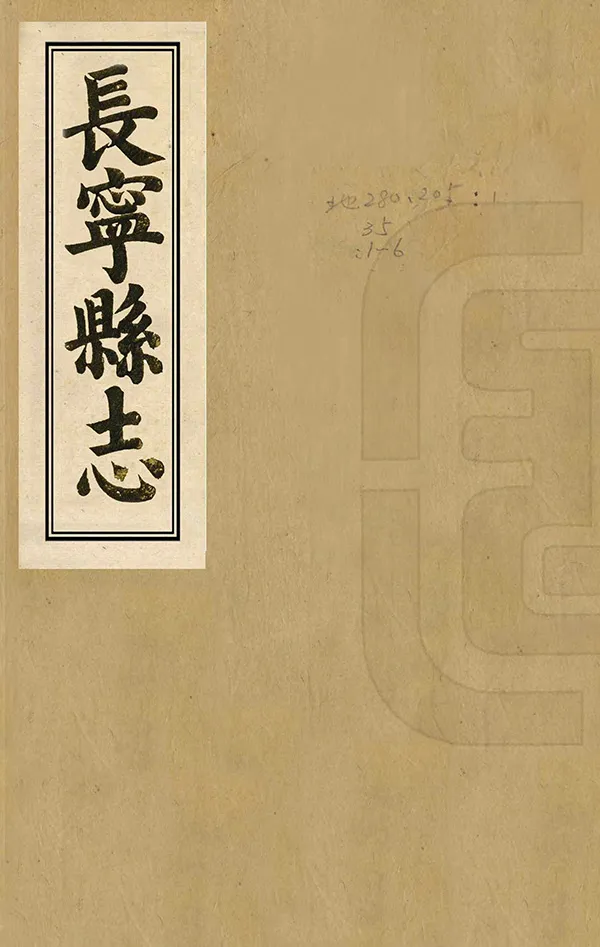 長寧縣志
地280.205:1
35
:1-6